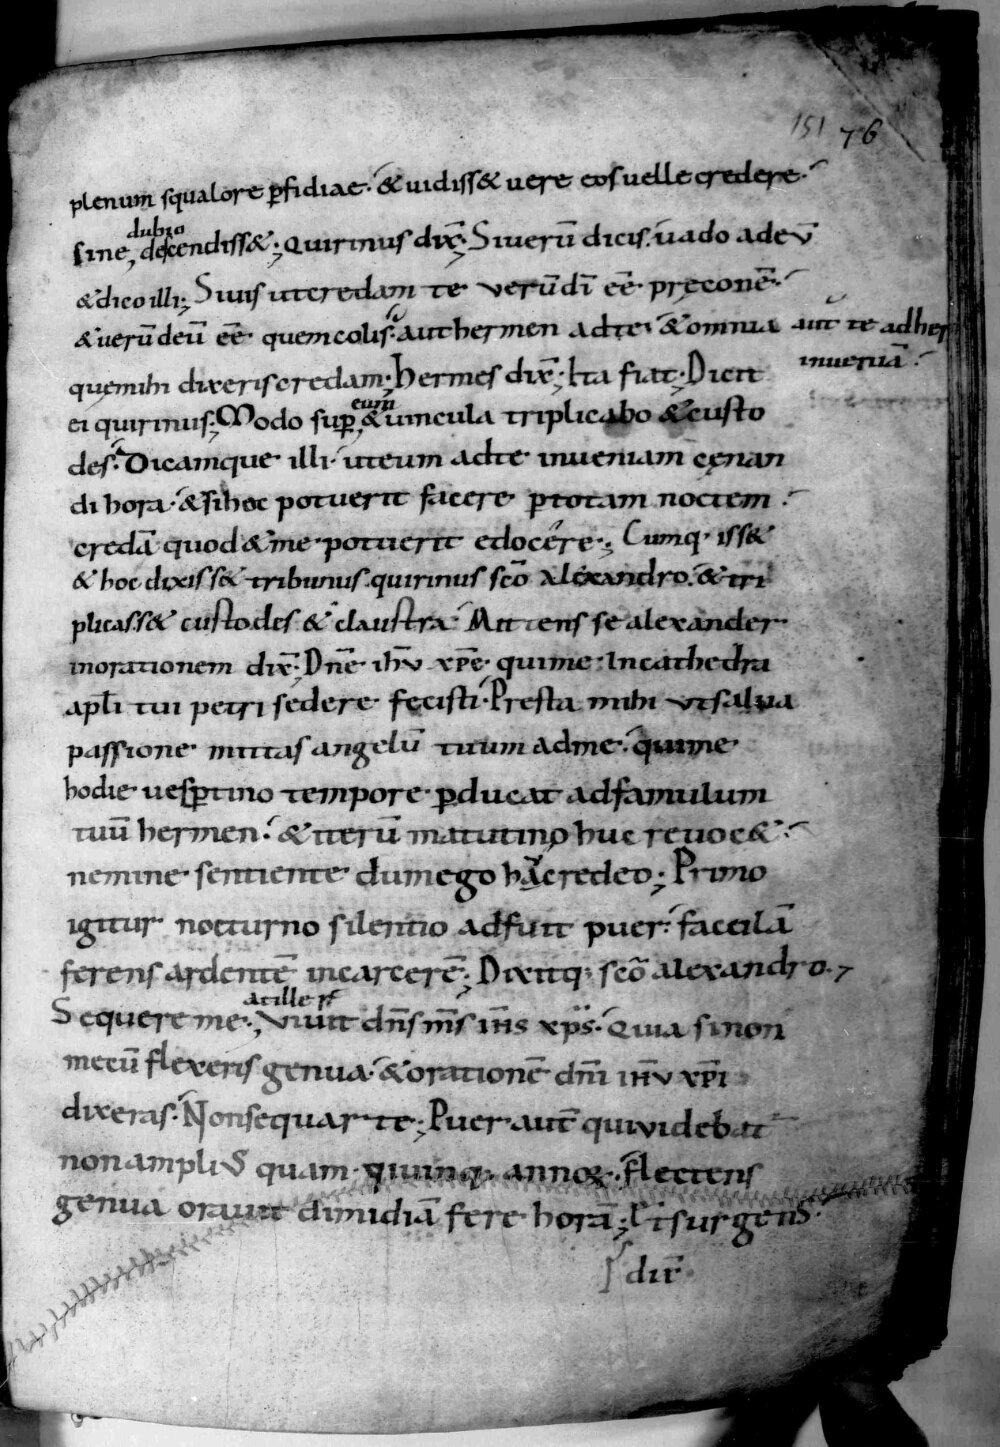 151 76
plenum squalore ꝑfidiae· & uidiss& uere eos uelle credere·
dubio
sine, descendiss&; Quirinus dix̄; Si uerū dicis· uado ad eū
& dico illi; Si uis ut credam te verū dī eē̄ pręconē·
& uerū deū eē̄ quem colis· aut hermen ad te· & omnia aut te ad her
inueniā
quę mihi dixeris credam; Hermes dix̄; Ita fiat; Dicit
eum
ei quirinus; Modo suꝑ, & uincula triplicabo & custo
des· Dicamque illi· ut eum ad te inueniam cęnan
di hora· & si hoc potuerit facere ꝑ totam noctem
credā quod & me potuerit edocere; Cumq· iss&
& hoc dixiss& tribunus quirinus sc̄o alexandro· & tri
plicass& custodes & claustra· Mittens se alexander
in orationem dix̄; Dn̄e ih̄u xp̄e· qui me in cathedra
apl̄i tui petri sedere fecisti· Presta mihi ut salua
passione mittas angelū tuum ad me· qui me
hodie uesꝑtino tempore ꝑducat ad famulum
tuū hermen· & iterū matutino huc reuoc&·
nemine sentiente dum ego hac redeo; Primo
igitur nocturno silentio adfuit puer· faccilā
ferens ardentē in carcerē; Dixitq· sc̄o alexandro·
at ille r̄
Sequere me·, Viuit dn̄s m̄s ih̄s xp̄s· Quia si non
mecū flexeris genua· & orationē dn̄i ih̄u xp̄i
dixeras· Non sequar te; Puer aut̄ qui uidebat
non amplius quam quinq· annoꝝ· flectens
genua orauit dimidiā fere horā; Et surgens·
dix̄